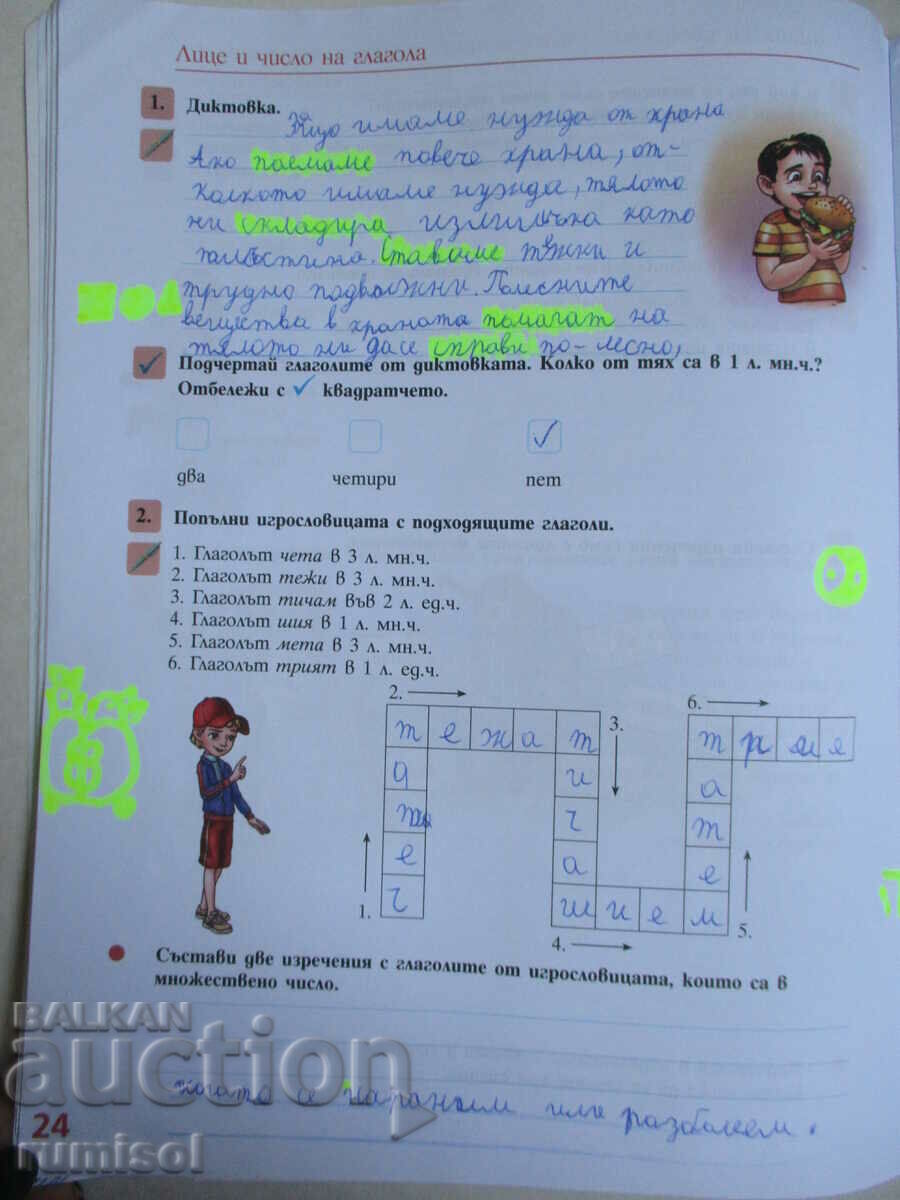 Лице и число на глагола
1. Диктовка.
имаме нужда от храна
Ако поемаме повече храна, от-
колкото имаме нужда, тялото
ни складира излишъка като
тлъстина. Ставаме тежки и
трудно подвижни. Полезните
вещества в храната помагат на
тялото ни да се справи по-лесно,
Подчертай глаголите от диктовката. Колко от тях са в 1 л. мн.ч.?
Отбележи с ✓ квадратчето.
✓
два четири пет
2. Попълни игрословицата с подходящите глаголи.
1. Глаголът чета в 3 л. мн.ч.
2. Глаголът тежи в 3 л. мн.ч.
3. Глаголът тичам във 2 л. ед.ч.
4. Глаголът шия в 1 л. мн.ч.
5. Глаголът мета в 3 л. мн.ч.
6. Глаголът трият в 1 л. ед.ч.
2. 6.
т е ж а т 3. т р и я
а и а
т ч т
е а е
1. ч ш и е м 5.
4.
Състави две изречения с глаголите от игрословицата, които са в
множествено число.
когато се нараним или разболеем.
24
BALKAN
auction
rumisol